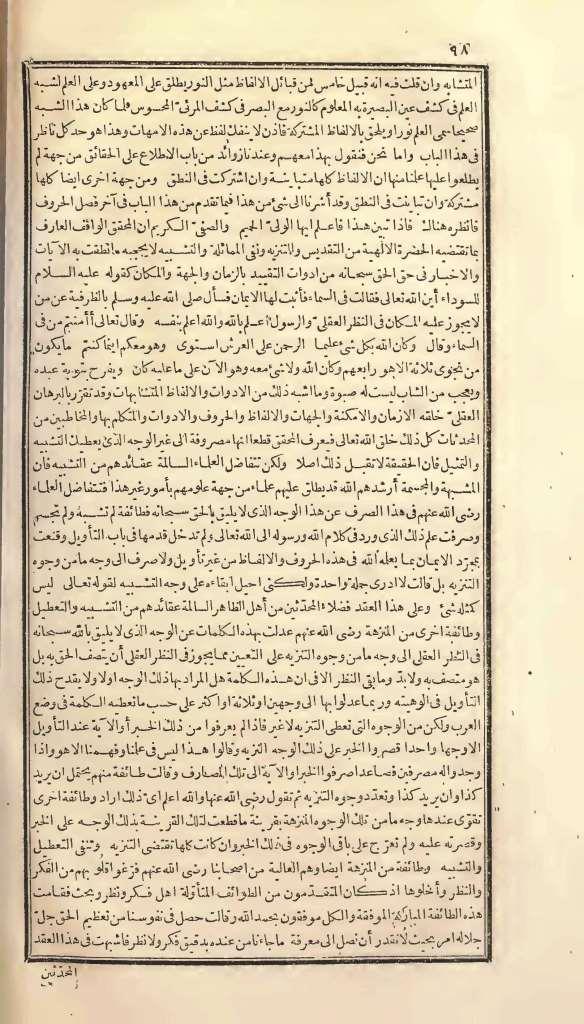 ٩٨
المتشابه وان قلت فيه انه قبيل خامس فمن قبائل الالفاظ مثل النور يطلق على المعهود وعلى العلم لشبه
العلم فى كشف عين البصيرة به المعلوم كالنور مع البصر فى كشف المرئى المحسوس فلما كان هذا الشبه
صحيحا سمى العلم نورا ويلحق بالالفاظ المشتركة فاذن لا ينفك لفظ عن هذه الامهات وهذا هو حد كل ناظر
فى هذا الباب واما نحن فنقول بهذا معهم وعندنا زوائد من باب الاطلاع على الحقائق من جهة لم
يطلعوا عليها علمنا منها ان الالفاظ كلها متباينة وان اشتركت فى النطق ومن جهة اخرى ايضا كلها
مشتركة وان تباينت فى النطق وقد أشرنا الى شئ من هذا فيما تقدم من هذا الباب فى آخر فصل الحروف
فانظره هناك فاذا تبين هذا فاعلم ايها الولى الحميم والصفى الكريم ان المحقق الواقف العارف
بما تقتضيه الحضرة الالهية من التقديس والتنزيه ونفى المماثلة والتشبيه لا يحجبه ما نطقت به الآيات
والاخبار فى حق الحق سبحانه من ادوات التقييد بالزمان والجهة والمكان كقوله عليه السلام
للسوداء أين الله تعالى فقالت فى السماء فأثبت لها الايمان فسأل صلى الله عليه وسلم بالظرفية عن من
لا يجوز عليه المكان فى النظر العقلى والرسول اعلم بالله والله اعلم بنفسه وقال تعالى أأمنتم من فى
السماء وقال وكان الله بكل شئ عليما الرحمن على العرش استوى وهو معكم اينما كنتم ما يكون
من نجوى ثلاثة الا هو رابعهم وكان الله ولا شئ معه وهو الآن على ما عليه كان ويفرح بتوبة عبده
ويعجب من الشاب ليست له صبوة وما اشبه ذلك من الادوات والالفاظ المتشابهات وقد تقرر بالبرهان
العقلى خلقه الازمان والامكنة والجهات والالفاظ والحروف والادوات والمتكلم بها والمخاطبين من
المحدثات كل ذلك خلق الله تعالى فيعرف المحقق قطعا انها مصروفة الى غير الوجه الذى يعطيك التشبيه
والتمثيل فان الحقيقة لا تقبل ذلك اصلا ولكن تتفاضل العلماء السالمة عقائدهم من التشبيه فان
المشبهة والمجسمة أرشدهم الله قد يطلق عليهم علماء من جهة علومهم بأمور غير هذا فتتفاضل العلماء
رضى الله عنهم فى هذا الصرف عن هذا الوجه الذى لا يليق بالحق سبحانه فطائفة لم تشبه ولم تجسم
وصرفت علم ذلك الذى ورد فى كلام الله ورسوله الى الله تعالى ولم تدخل قدمها فى باب التأويل وقنعت
بمجرد الايمان بما يعلمه الله فى هذه الحروف والالفاظ من غير تأويل ولا صرف الى وجه ما من وجوه
التنزيه بل قالت لا ادرى جملة واحدة ولكنى احيل ابقاءه على وجه التشبيه لقوله تعالى ليس
كمثله شئ وعلى هذا العقد فضلاء المحدثين من أهل الظاهر السالمة عقائدهم من التشبيه والتعطيل
وطائفة اخرى من المنزهة رضى الله عنهم عدلت بهذه الكلمات عن الوجه الذى لا يليق بالله سبحانه
فى النظر العقلى الى وجه ما من وجوه التنزيه على التعيين مما يجوز فى النظر العقلى أن يتصف الحق به بل
هو متصف به ولا بد وما بقى النظر الا فى ان هذه الكلمة هل المراد بها ذلك الوجه اولا ولا يقدح ذلك
التأويل فى الوهيته وربما عدلوا بها الى وجهين او ثلاثة او اكثر على حسب ما تعطيه الكلمة فى وضع
العرب ولكن من الوجوه التى تعطى التنزيه لا غير فاذا لم يعرفوا من ذلك الخبر أو الآية عند التأويل
الا وجها واحدا قصروا الخبر على ذلك الوجه النزيه وقالوا هذا ليس فى علمنا وفهمنا الا هو واذا
وجدوا له مصرفين فصاعدا صرفوا الخبر او الآية الى تلك المصارف وقالت طائفة منهم يحتمل ان يريد
كذا وان يريد كذا وتعدد وجوه التنزيه ثم تقول رضى الله عنها والله اعلم اى ذلك اراد وطائفة اخرى
تقوى عندها وجه ما من تلك الوجوه المنزهة بقرينة ما قطعت لتلك القرينة بذلك الوجه على الخبر
وقصرته عليه ولم تعرج على باقى الوجوه فى ذلك الخبر وان كانت كلها تقتضى التنزيه وتنفى التعطيل
والتشبيه وطائفة من المنزهة ايضا وهم العالية من اصحابنا رضى الله عنهم فرّغوا قلوبهم من الفكر
والنظر وأخلوها اذ كان المتقدمون من الطوائف المتأولة اهل فكر ونظر وبحث فقامت
هذه الطائفة المباركة الموفقة والكل موفقون بحمد الله وقالت حصل فى نفوسنا من تعظيم الحق جل
جلاله امر بحيث لا نقدر أن نصل الى معرفة ما جاءنا من عنده بدقيق فكر ولا نظر فاشبهت فى هذا العقد
المحدثين